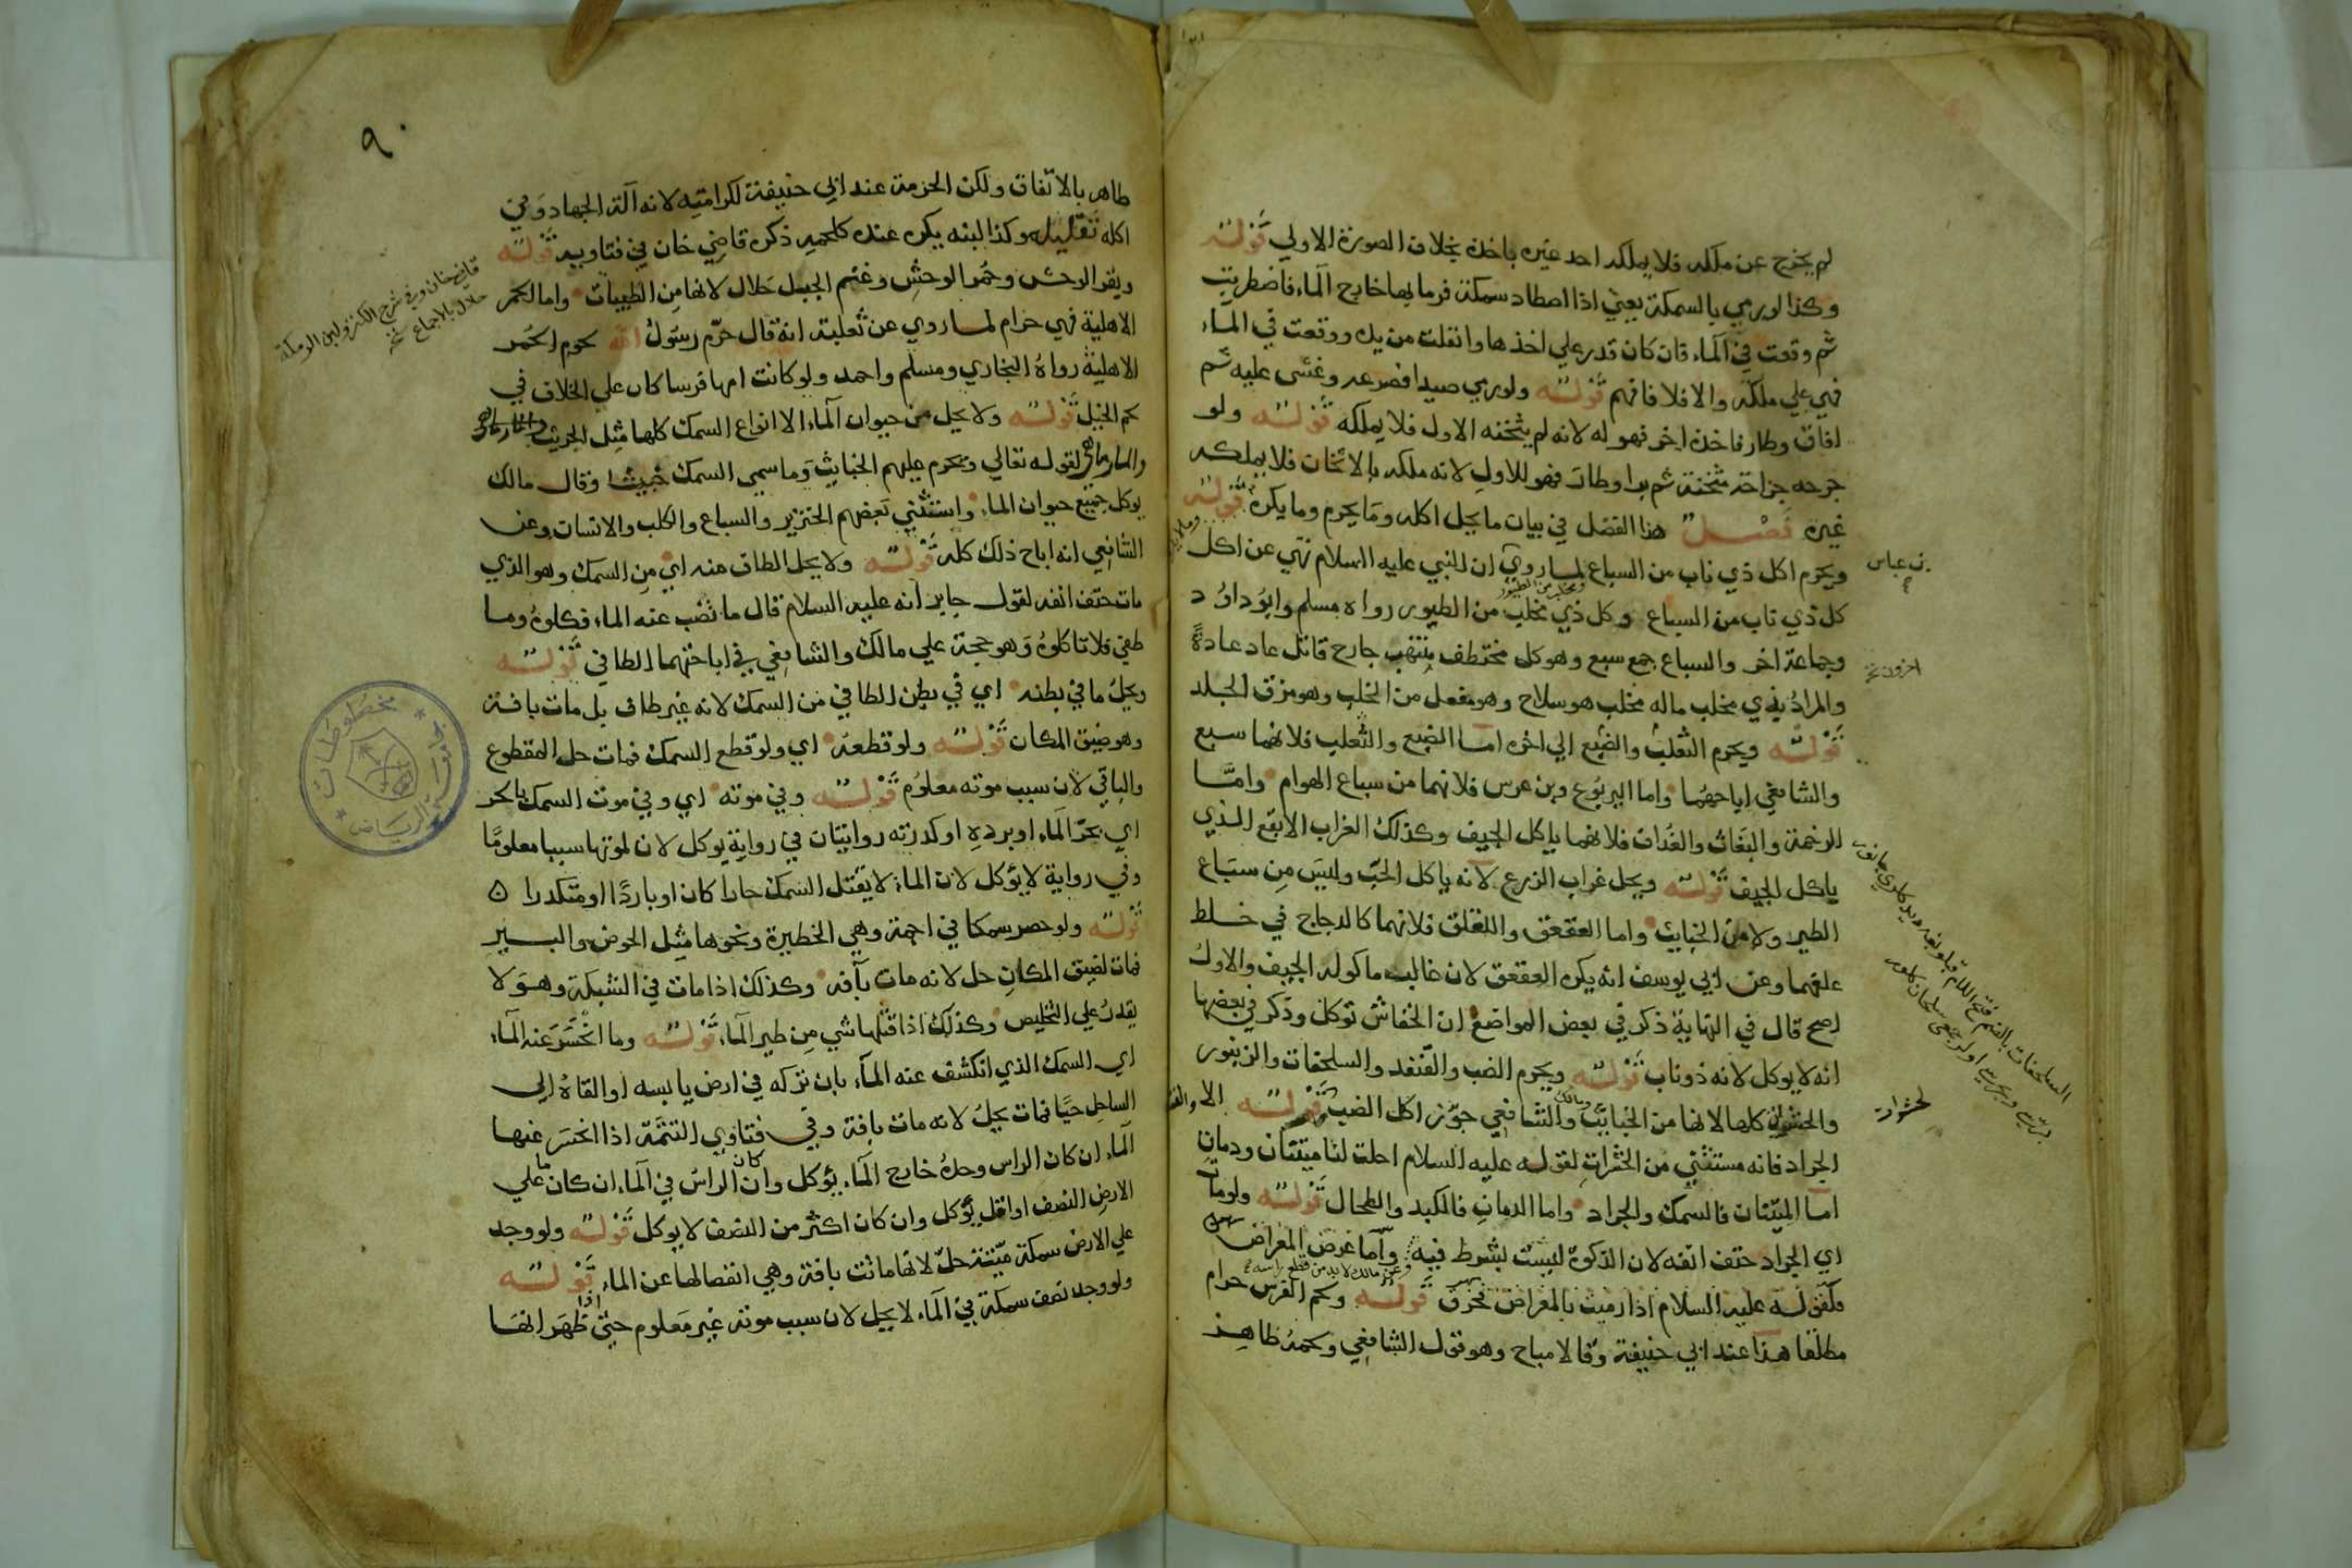 لم يخرج عن ملكه فلا يملكه احد غيره باخذه بخلاف الصورة الاولي قوله
وكذا لو رمي بالسمكة يعني اذا اصطاد سمكة فرما بها خارج المآء فاضطربت
ثم وقعت في المآء فان كان قدر علي اخذها وانفلت من يده ووقعت في المآء
فهي علي ملكه والا فلا فافهم قوله ولو رمي صيدا فصرعه وغشي عليه ثم
افاق وطار فاخذه اخر فهو له لانه لم يثخنه الاول فلا يملكه قوله ولو
جرحه جراحة مثخنة ثم برا وطار فهو للاول لانه ملكه بالاثخان فلا يملكه
غيره فصل هذا الفصل في بيان ما يحل اكله وما يحرم وما يكره قوله
ويحرم اكل ذي ناب من السباع لما روي ان النبي عليه السلام نهي عن اكل
بن عباس
كل ذي ناب من السباع وكل ذي مخلب من الطيور رواه مسلم وابو داود
وجماعة اخر والسباع جمع سبع وهو كل مختطف منتهب جارح قاتل عاد عادة
اخرون
والمراد بذي مخلب ماله مخلب هو سلاح وهو مفعل من الخلب وهو مزق الجلد
قوله ويحرم الثعلب والضبع الي اخره اما الضبع والثعلب فلانهما سبع
والشافعي اباحهما واما اليربوع وبن عرس فلانهما من سباع الهوام واما
الرخمة والبغاث والغداف فلانهما ياكل الجيف وكذلك الغراب الابقع الذي
ياكل الجيف قوله ويحل غراب الزرع لانه ياكل الحب وليس من سباع
الطير ولا من الخبايث واما العقعق واللقلق فلانهما كالدجاج في خلط
علفهما وعن ابي يوسف انه يكره العقعق لان غالب ماكوله الجيف والاول
اصح قال في النهاية ذكر في بعض المواضع ان الخفاش توكل وذكر في بعضها
انه لا يوكل لانه ذو ناب قوله ويحرم الضب والقنفد والسلحفات والزنبور
والحشرات كلها لانها من الخبايث والشافعي جوز اكل الضب قوله الا
ومالك
الجراد فانه مستثني من الحشرات لقوله عليه السلام احلت لنا ميتتان ودمان
اما الميتتان فالسمك والجراد واما الدمان فالكبد والطحال قوله ولو مات
اي الجراد حتف انفه لان الذكوة ليست بشرط فيه واما عرض المعراض
وعن مالك لا بد من قطع راسه
فلقوله عليه السلام اذا رميت بالمعراض فخرق قوله ولحم الفرس حرام
مطلقا هذا عند ابي حنيفة وقالا مباح وهو قول الشافعي ولحمه طاهر
٩٠
طاهر بالاتفاق ولكن الحرمة عند ابي حنيفة لكرامته لانه آلة الجهاد وفي
اكله تقليله وكذا لبنه يكره عنده كلحمه ذكره قاضي خان في فتاويه قوله
وبقر الوحش وحمر الوحش وغنم الجبل حلال لانها من الطيبات واما الحمر
قاضي خان وفي شرح الكنز ولبن الرمكة
حلال بالاجماع
الاهلية فهي حرام لما روي عن ثعلبة انه قال حرم رسول الله لحوم الحمر
الاهلية رواه البخاري ومسلم واحمد ولو كانت امها فرسا كان علي الخلاف في
لحم الخيل قوله ولا يحل من حيوان المآء الا انواع السمك كلها مثل الجريث
والمارماهي لقوله تعالي ويحرم عليهم الخبايث وما سمي السمك خبيثا وقال مالك
يوكل جميع حيوان الماء واستثني بعضهم الخنزير والسباع والكلب والانسان وعن
الشافعي انه اباح ذلك كله قوله ولا يحل الطاف منه اي من السمك وهو الذي
مات حتف انفه لقول جابر انه عليه السلام قال ما نضب عنه الماء فكلوه وما
طفي فلا تاكلوه وهو حجة علي مالك والشافعي في اباحتهما الطافي قوله
ويحل ما في بطنه اي في بطن الطافي من السمك لانه غير طاف بل مات بافة
وهو ضيق المكان قوله ولو قطعه اي ولو قطع السمك فمات حل المقطوع
والباقي لان سبب موته معلوم قوله وفي موته اي وفي موت السمك بالحر
اي بحر الماء او برده او كدرته روايتان في رواية يوكل لان لموتها سببا معلوما
وفي رواية لا يؤكل لان الماء لا يقتل السمك حارا كان او باردا او متكدرا
قوله ولو حصر سمكا في اجمة وهي الحظيرة ونحوها مثل الحوض والبير
فمات لضيق المكان حل لانه مات بآفة وكذلك اذا مات في الشبكة وهو لا
يقدر علي التخليص وكذلك اذا قتلها شي من طير المآء قوله وما انحسر عنه المآء
اي السمك الذي انكشف عنه المآء بان تركه في ارض يابسه او القاه الي
الساحل حيا فمات يحل لانه مات بافة وفي فتاوي التتمة اذا انحسر عنها
المآء ان كان الراس وحده خارج المآء يؤكل وان كان الراس في المآء ان كان ما علي
الارض النصف او اقل يؤكل وان كان اكثر من النصف لا يوكل قوله ولو وجد
علي الارض سمكة ميتة حل لانها ماتت بافة وهي انفصالها عن الماء قوله
ولو وجد نصف سمكة في المآء لا يحل لان سبب موته غير معلوم حتي اذا ظهر انها
مخطوطات
الرياض